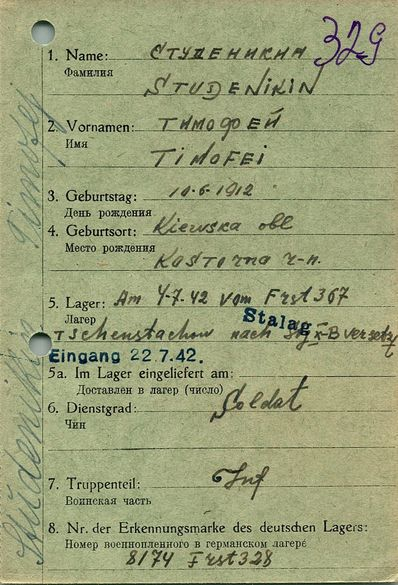 329
1. Name: СТУДЕНИКИН
Фамилия
STUDENIKIN
2. Vornamen: ТИМОФЕЙ
Имя
TIMOFEI
3. Geburtstag: 10.6.1912
День рождения
4. Geburtsort: Kiewska obl
Место рождения
Kastorna r-n.
5. Lager: Am 4.7.42 vom Frst 367
Лагер
Stalag
Tschenstachow nach X-B versetzt
Eingang 22.7.42.
5a. Im Lager eingeliefert am:
Доставлен в лагер (число)
6. Dienstgrad: Soldat
Чин
7. Truppenteil: Inf
Воинская часть
8. Nr. der Erkennungsmarke des deutschen Lagers:
Номер военнопленного в германском лагере
8174 Frst 328
Studenikin Timofej